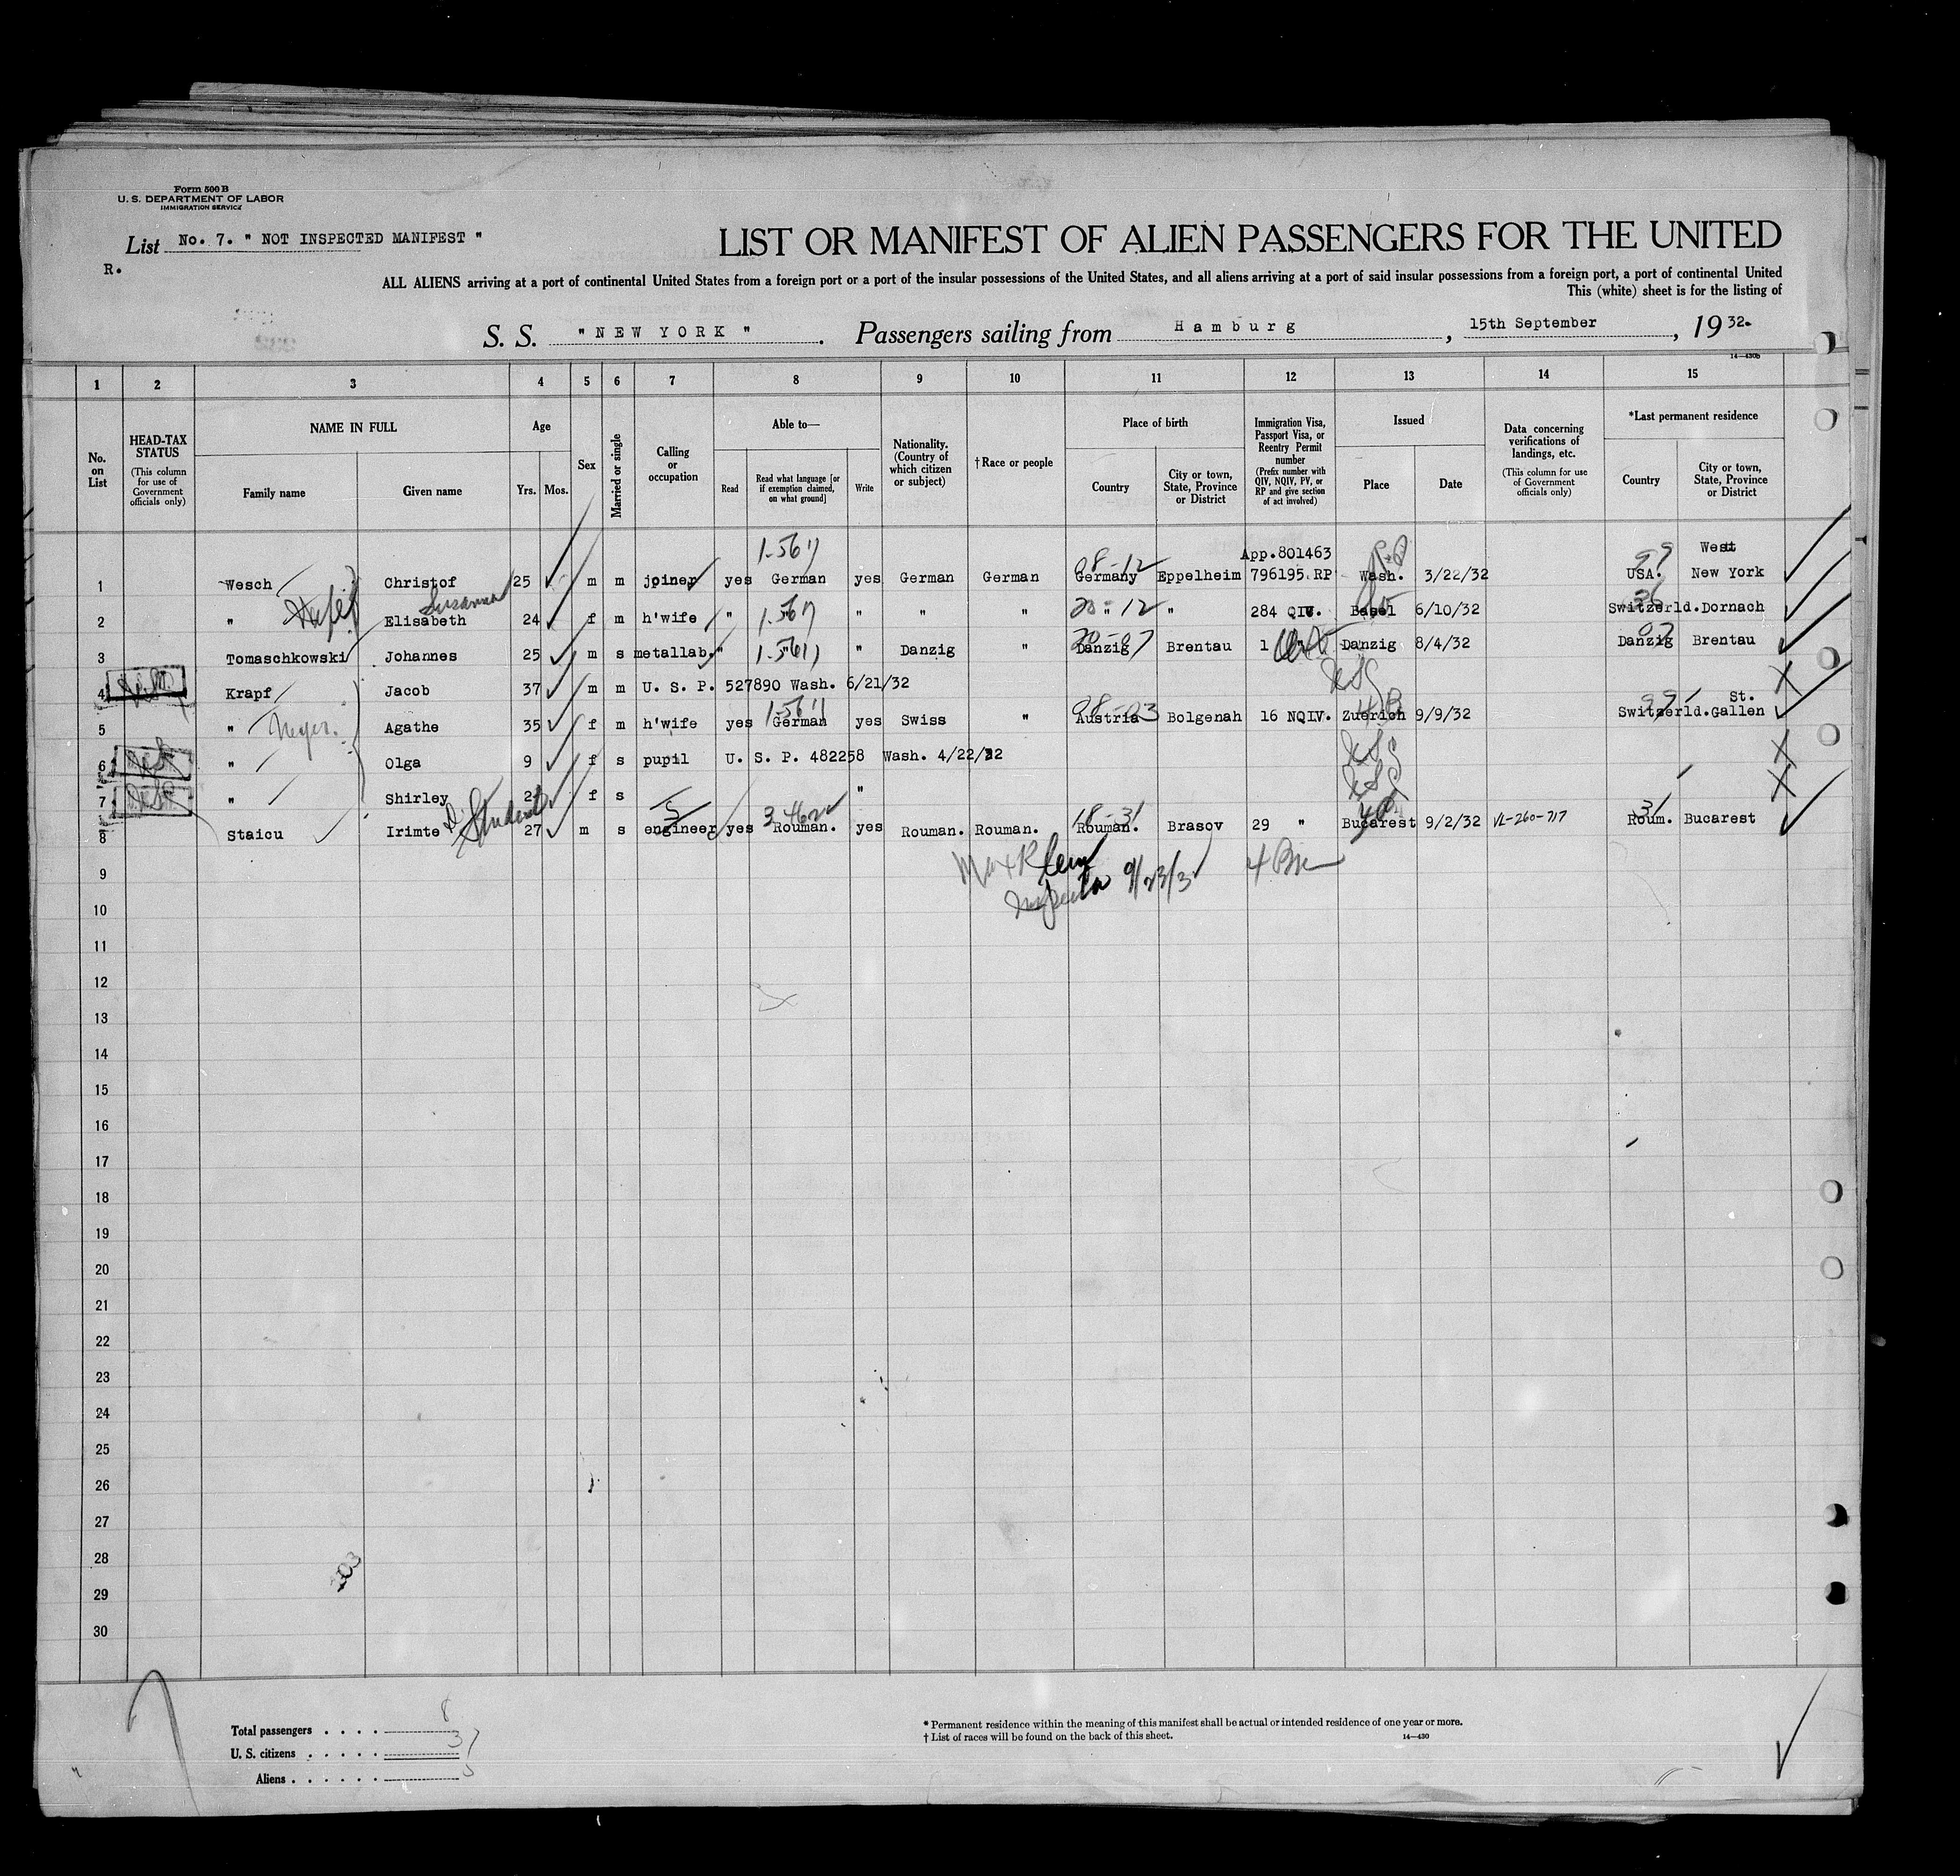 Form 500 B
U. S. DEPARTMENT OF LABOR
IMMIGRATION SERVICE
List No. 7. " NOT INSPECTED MANIFEST "
R.
LIST OR MANIFEST OF ALIEN PASSENGERS FOR THE UNITED
ALL ALIENS arriving at a port of continental United States from a foreign port or a port of the insular possessions of the United States, and all aliens arriving at a port of said insular possessions from a foreign port, a port of continental United
This (white) sheet is for the listing of
S. S. " NEW YORK " . Passengers sailing from Hamburg , 15th September , 19 32.
14—430b
1 2 3 4 5 6 7 8 9 10 11 12 13 14 15
No. on List
HEAD-TAX STATUS (This column for use of Government officials only)
NAME IN FULL
Family name
Given name
Age
Yrs. Mos.
Sex
Married or single
Calling or occupation
Able to—
Read
Read what language [or if exemption claimed, on what ground]
Write
Nationality. (Country of which citizen or subject)
† Race or people
Place of birth
Country
City or town, State, Province or District
Immigration Visa, Passport Visa, or Reentry Permit number (Prefix number with QIV, NQIV, PV, or RP and give section of act involved)
Issued
Place
Date
Data concerning verifications of landings, etc. (This column for use of Government officials only)
*Last permanent residence
Country
City or town, State, Province or District
1-567 08-12 App.801463 99 West
1 Wesch Christof 25 m m joiner yes German yes German German Germany Eppelheim 796195 RP Wash. 3/22/32 USA. New York
Susanna
2 " Elisabeth 24 f m h'wife " 1.567 " " " " 20-12 " 284 QIV. Basel 6/10/32 Switzerld. Dornach
3 Tomaschkowski Johannes 25 m s metallab. " " " Danzig " Danzig Brentau 1 Danzig 8/4/32 Danzig Brentau
4 Krapf Jacob 37 m m U. S. P. 527890 Wash. 6/21/32
1-567 08-03 99 St.
5 " Meyer. Agathe 35 f m h'wife yes German yes Swiss " Austria Bolgenah 16 NQIV. Zuerich 9/9/32 Switzerld. Gallen
6 " Olga 9 f s pupil U. S. P. 482258 Wash. 4/22/32
7 " Shirley 2 f s "
Student 18-31 31
8 Staicu Irimte 27 m s engineer yes Rouman. yes Rouman. Rouman. Rouman. Brasov 29 " Bucarest 9/2/32 VL-260-717 Roum. Bucarest
9 Max Klein
Inspector 9/23/32
10
11
12
13
14
15
16
17
18
19
20
21
22
23
24
25
26
27
28
29
30
Total passengers . . . . 8
U. S. citizens . . . . . 3
Aliens . . . . . . 5
* Permanent residence within the meaning of this manifest shall be actual or intended residence of one year or more.
† List of races will be found on the back of this sheet.
14—430